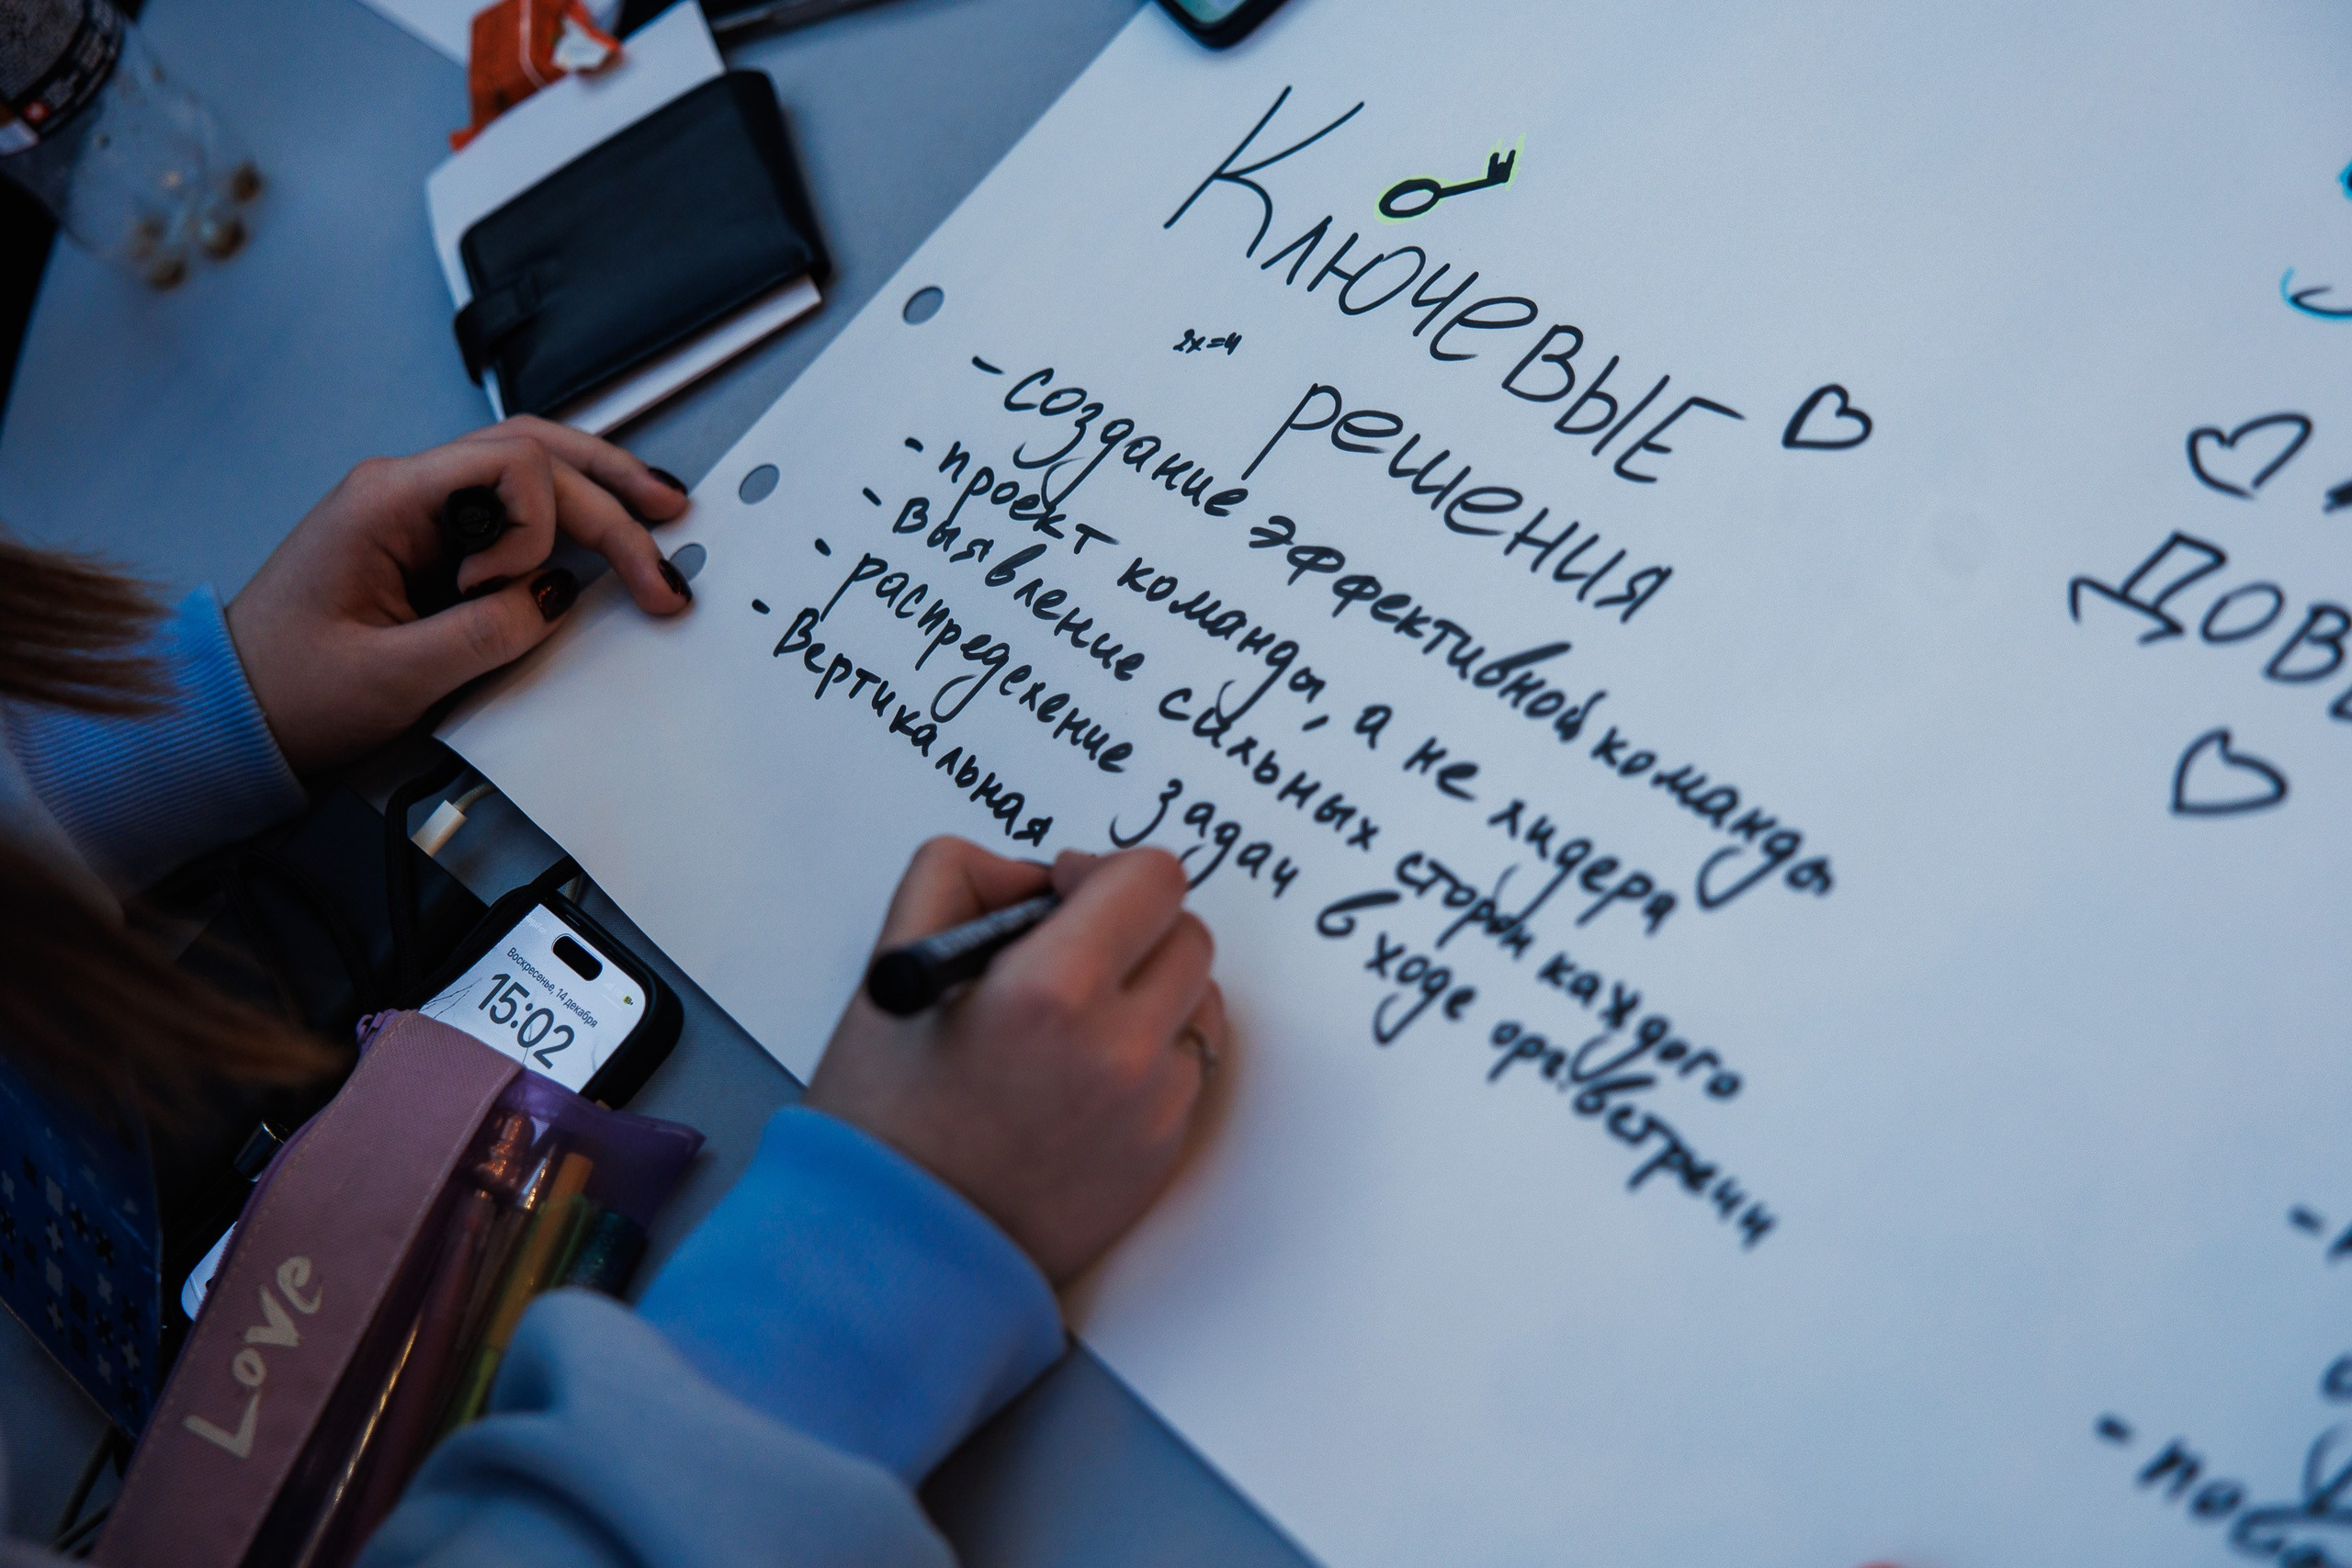 Ключевые
решения
2x=4
- создание эффективной команды
- проект команды, а не лидера
- выявление сильных сторон каждого
- распределение задач в ходе
- Вертикальная
ДОВ
Воскресенье, 14 декабря
15:02
Love